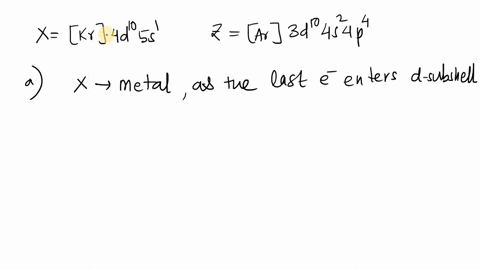 X = [Kr] 4d¹⁰ 5s¹ Z = [Ar] 3d¹⁰ 4s² 4p⁴
a) X → metal, as the last e⁻ enters d-subshell